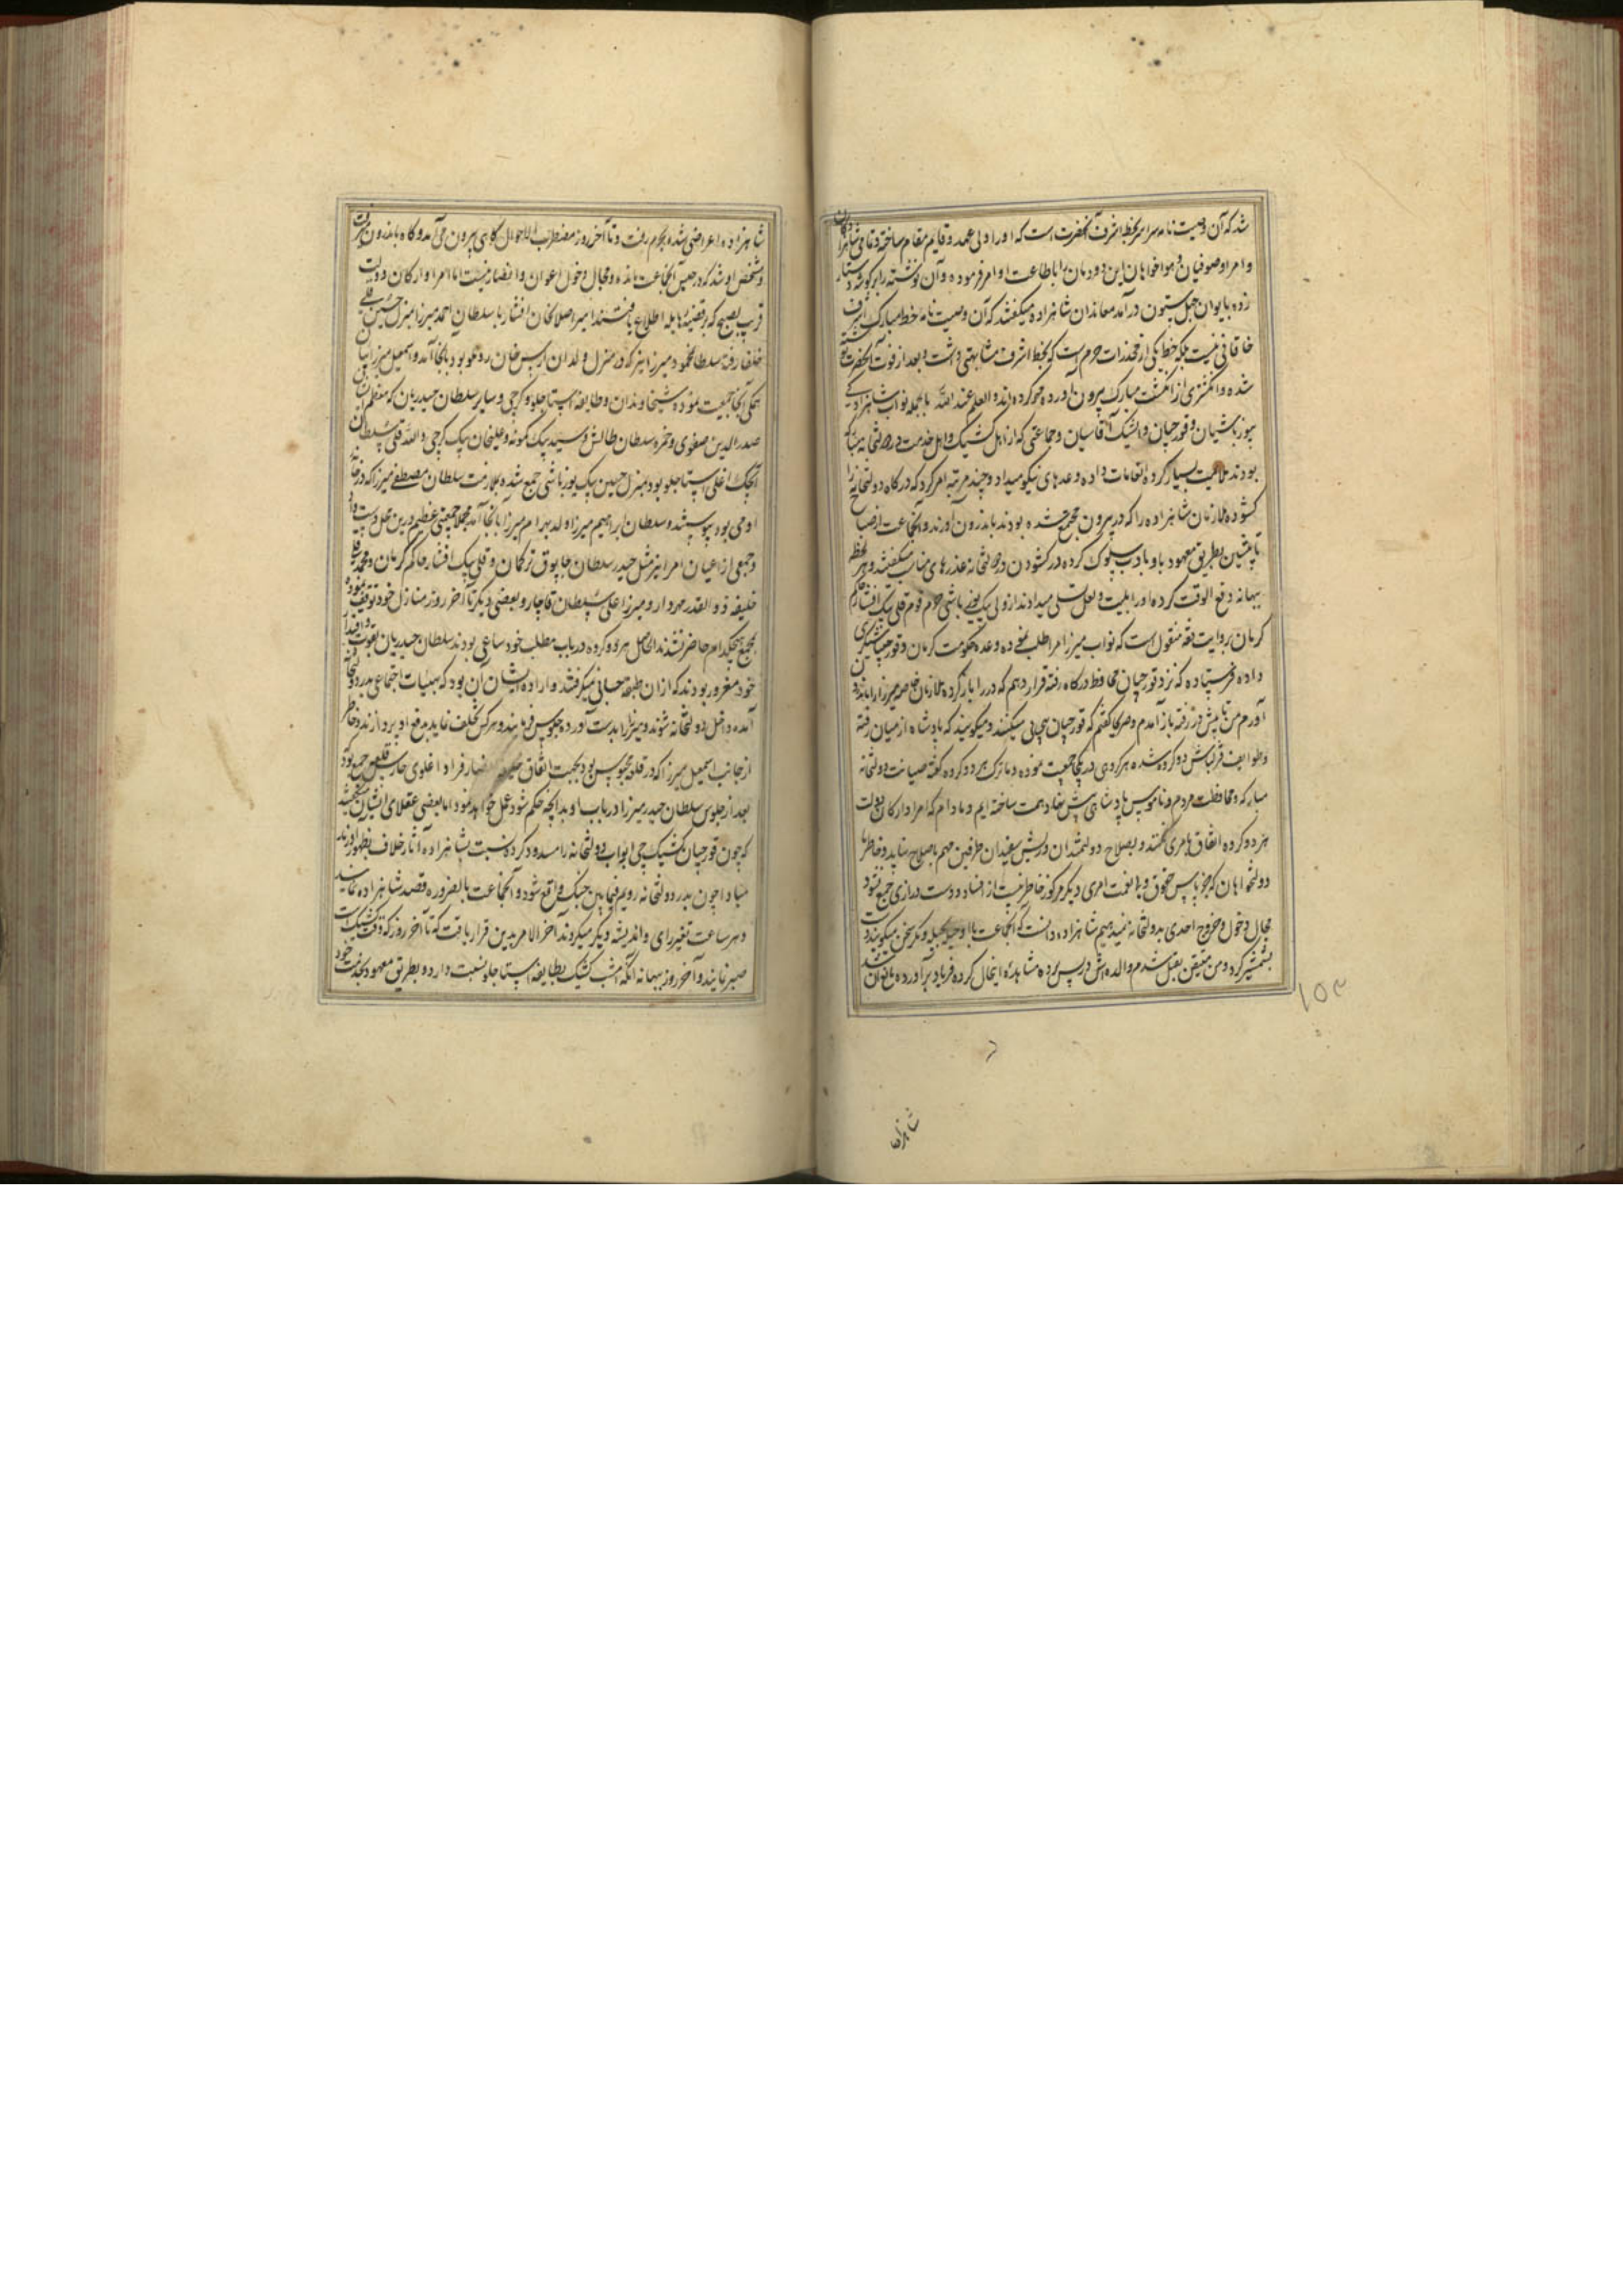 شد که آن وصیت نامه سراسر بخط اشرف آنحضرت است که او را ولی عهد و قایم مقام ساخته و تمامی شاهزادگان
و امرا و صوفیان و هواخواهان این دودمان را باطاعت او امر فرموده و آن نوشته را بر گوشه دستار
زده بایوان چهل ستون درآمد معاندان شاهزاده میگفتند که آن وصیت نامه خط مبارک اشرف
خاقانی نیست بلکه خط یکی از مخدرات حرم است که بخط اشرف مشابهتی داشت و بعد از فوت آنحضرت نوشته
شده و انگشتری از انگشت مبارک بیرون آورده مهر کرده اند و العلم عند الله بالجمله نواب شاهزاده
بیوزباشیان و قورچیان و ایشک آقاسیان و جماعتی که از اهل کشیک و اهل خدمت در دولتخانه مبارکه
بودند ملایمت بسیار کرده انعامات داده وعدهای نیکو میداد و چند مرتبه امر کرد که درگاه دولتخانه را
کشوده ملازمان شاهزاده را که در بیرون مجتمع شده بودند باندرون آورند و آنجماعت از صباح
تا پیشین بطریق معهود با او بادب سلوک کرده در کشودن در دولتخانه عذرهای مناسب میگفتند و هر لحظه
بیهانه دفع الوقت کرده او را بلیت و لعل تسلی میدادند از ولی بیک یوزباشی حرم قوم قلی بیک افشار حاکم
کرمان بروایت ثقه منقول است که نواب میرزا مرا طلب نموده وعده حکومت کرمان و قورچیباشیگری
داده فرستاده که نزد قورچیان محافظ درگاه رفته قرار دهم که در را باز کرده ملازمان خاصه میرزا را باندرون
آورم من تا پیش در رفته باز آمدم و صریحا گفتم که قورچیان پی پی میکنند و میگویند که پادشاه از میان رفته
و طوایف قزلباش دو گروه شده هر گروهی در یکجا جمعیت نموده و ما ترک هر دو گروه گفته صیانت دولتخانه
مبارکه و محافظت حرم و ناموس پادشاهی پیش نهاد همت ساخته ایم و مادام که امرا و ارکان دولت
هر دو گروه اتفاق بامری نکنند و بصلاح دولتمندان و ریش سفیدان طرفین مهم باصلاح نیاید و خاطر ما
دولتخواهان که بجز پاس حقوق ولینعمت امری دیگر مرکوز خاطر نیست از افساد و دست درازی جمع نشود
مجال دخول و خروج احدی بدولتخانه نمیدهیم شاهزاده دانست که آنجماعت با او حیله و مکر سخن میگویند دست
بشمشیر کرد و من متیقن بقتل شدم والده اش در پس پرده مشاهده اینحال کرده فریاد برآورده مانع آن شد
۱۵۳
شاهزاده
شاهزاده اعراضی شده بحرم رفت و تا آخر روز مضطرب الاحوال گاهی بیرون می آمد و گاه باندرون میرفت
و مشخص او شد که در حبس آنجماعت مانده و مجال دخول اعوان و انصار نیست اما امرا و ارکان دولت
قریب بصبح که بر قضیه هایله اطلاع یافتند امیر اصلانخان افشار با سلطان احمد میرزا بمنزل حسین قلی
خلفا رفته سلطان محمود میرزا نیز که در منزل ولدان اربس خان روملو بود بانجا آمد و اسمعیل میرزائیان
همگی آنجا جمعیت نموده شیخاوندان و طایفه استاجلو و گرجی و سایر سلطان حیدریان که معظم ایشان
صدرالدین صفوی و حمزه سلطان طالش و سید بیک کمونه و علیخان بیک گرجی و الله قلی سلطان
ایجک اغلی استاجلو بود بمنزل حسین بیک یوزباشی جمع شده بملازمت سلطان مصطفی میرزا که در خانه
او می بود پیوستند و سلطان ابراهیم میرزا ولد بهرام میرزا بانجا آمد مجملا جمعیتی عظیم درین محل دست داد
و جمعی از اعیان امرا نیز مثل حیدر سلطان چابوق ترکمان و قلی بیک افشار حاکم کرمان و محمد قلی
خلیفه ذوالقدر مهردار و میرزا علی سلطان قاجار و بعضی دیگر تا آخر روز در منازل خود توقف نموده
بمجمع هیچکدام حاضر نشدند الحاصل هر دو گروه در باب مطلب خود ساعی بودند سلطان حیدریان بقوت و اقتدار
خود مغرور بودند که از ان طبقه حسابی نمیگرفتند و اراده ایشان آن بود که بهیئات اجتماعی بدر دولتخانه
آمده داخل دولتخانه شوند و میرزا را بدست آورده بجلوس فرمایند و هر کس تخلف نماید بدفع او پردازند و خاطر
از جانب اسمعیل میرزا که در قلعه محبوس بود بجهت اتفاق خلیفه انصار قراداغلوی حارس قلعه جمع بود که
بعد از جلوس سلطان حیدر میرزا در باب او بدانچه حکم شود عمل خواهد نمود اما بعضی عقلای ایشان میگفتند
که چون قورچیان کشیک چی ابواب دولتخانه را مسدود کرده نسبت بشاهزاده آثار خلاف بظهور آورند
مبادا چون بدر دولتخانه رویم فیمابین جنگ واقع شود و آنجماعت بالضروره قصد شاهزاده نمایند
و هر ساعت تغییر رای و اندیشه دیگر میکردند آخر الامر بدین قرار یافت که تا آخر روز که وقت کشیک است
صبر نمایند و آخر روز ببهانه آنکه امشب کشیک بطایفه استاجلو نسبت دارد و بطریق معهود بخدمت خود